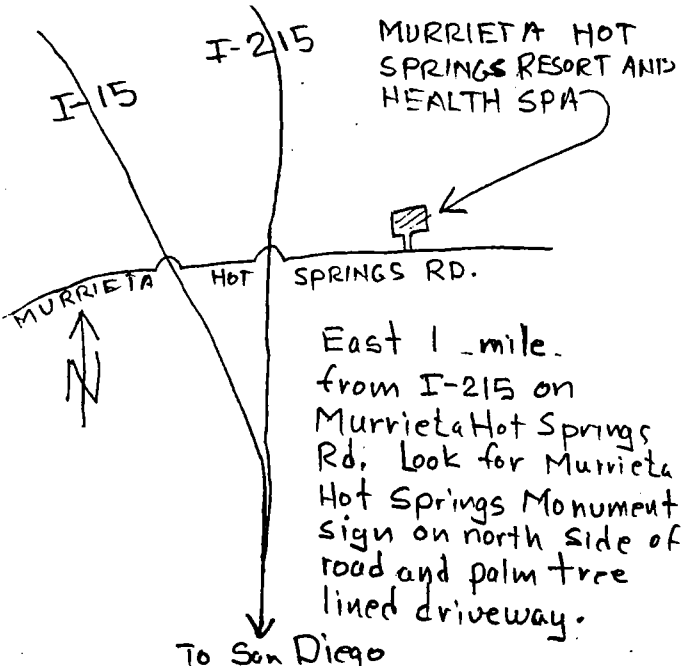 I-15
I-215
MURRIETA HOT
SPRINGS RESORT AND
HEALTH SPA
MURRIETA HOT SPRINGS RD.
N
East 1 mile
from I-215 on
Murrieta Hot Springs
Rd. Look for Murrieta
Hot Springs Monument
sign on north side of
road and palm tree
lined driveway.
To San Diego